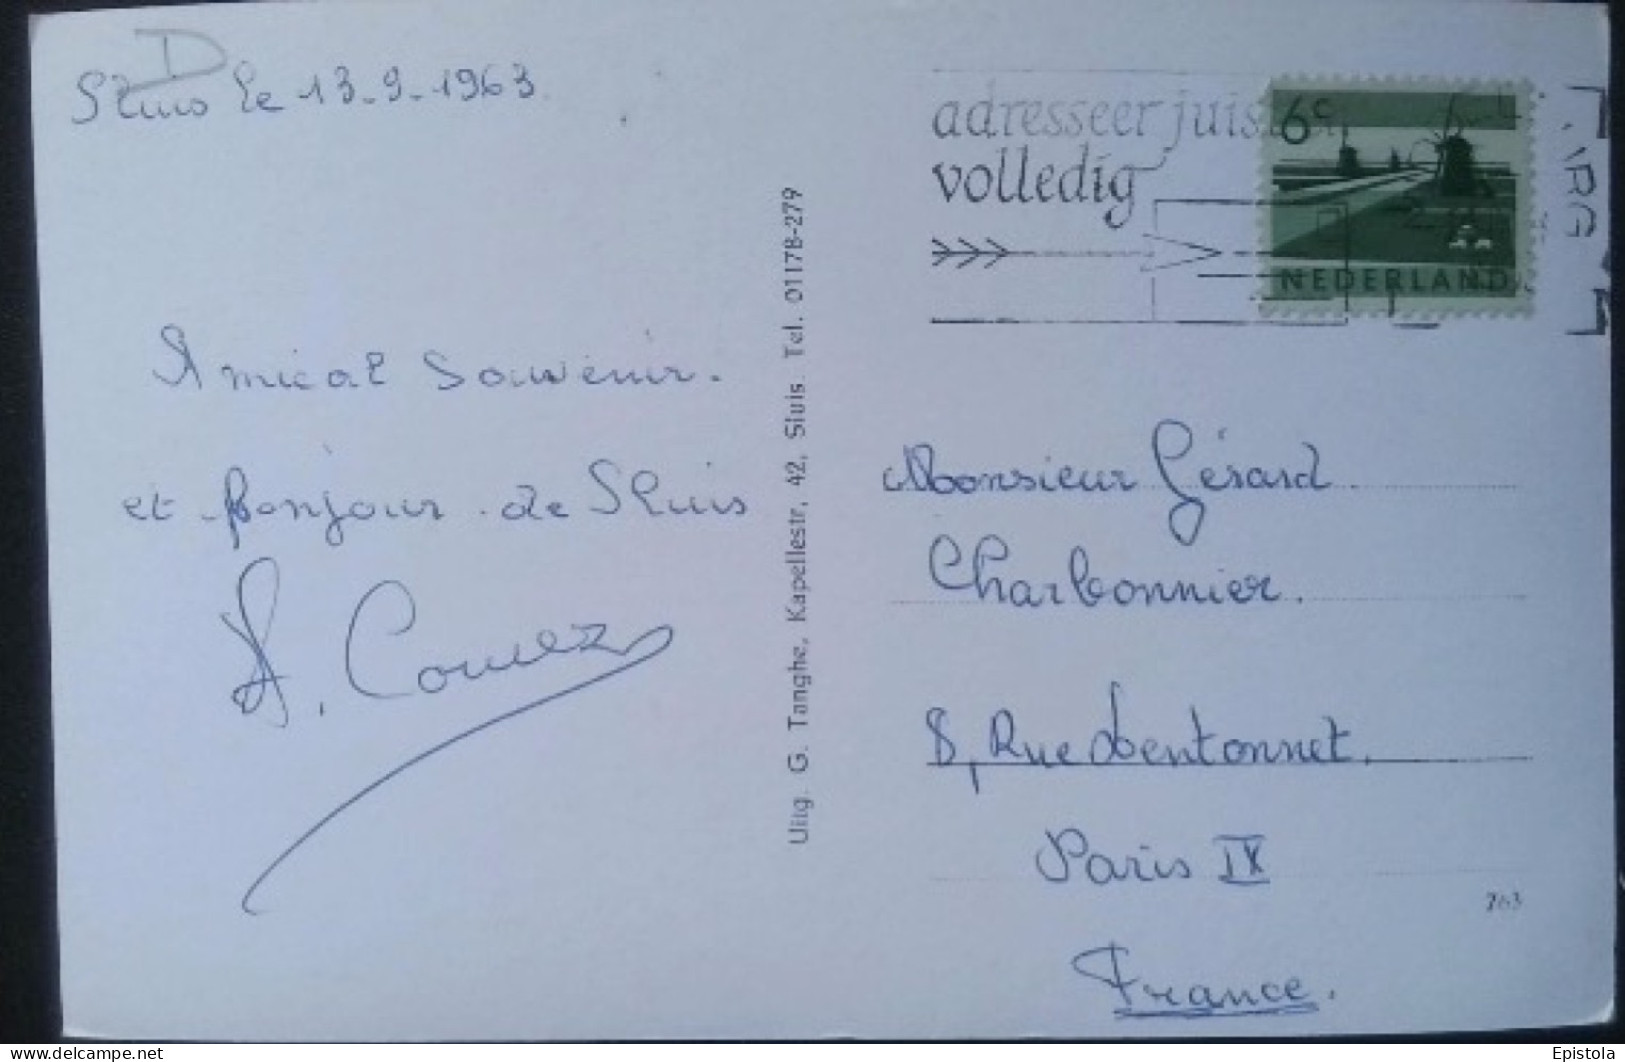 D
Sluis le 13-9-1963
Amical souvenir.
et bonjour de Sluis
Uitg. G. Tanghe, Kapellestr, 42, Sluis. Tel. 01178-279
adresseer juist
volledig
6c
NEDERLAND
Monsieur Gérard
Charbonnier.
8, Rue Lentonnet.
Paris IX
France.
763
www.delcampe.net
Epistola